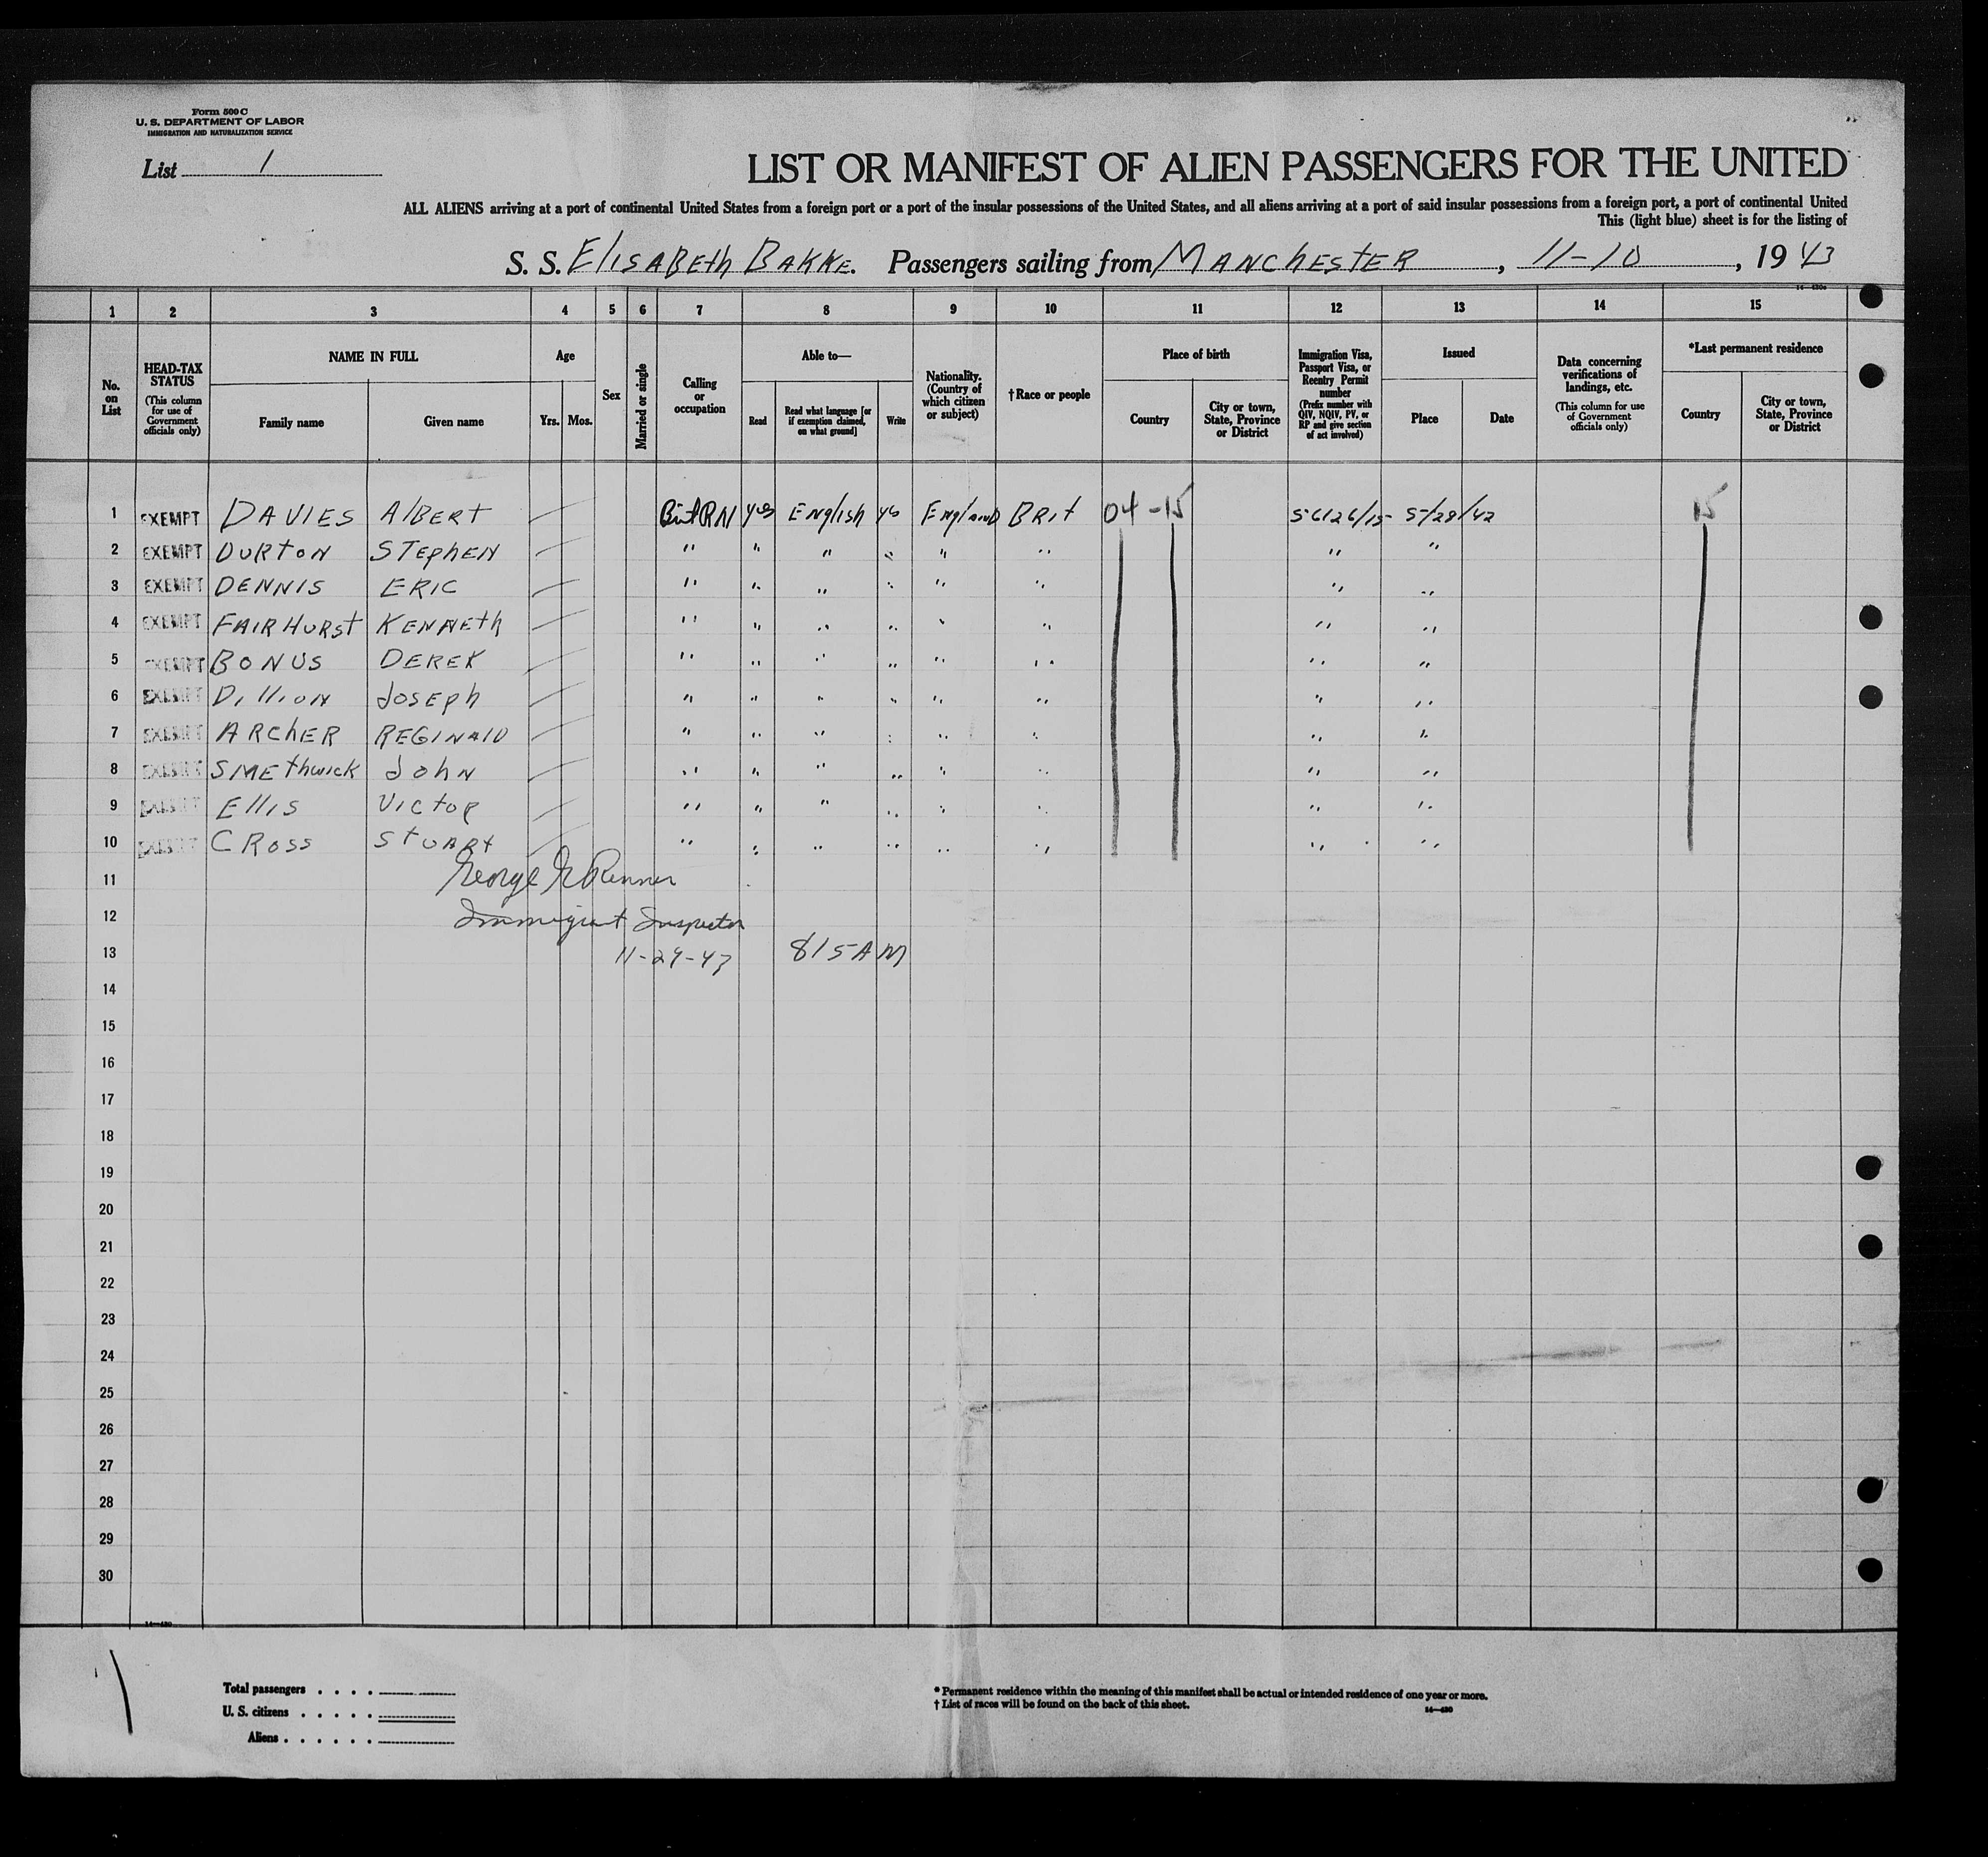 Form 500 C
U. S. DEPARTMENT OF LABOR
IMMIGRATION AND NATURALIZATION SERVICE
List 1
LIST OR MANIFEST OF ALIEN PASSENGERS FOR THE UNITED
ALL ALIENS arriving at a port of continental United States from a foreign port or a port of the insular possessions of the United States, and all aliens arriving at a port of said insular possessions from a foreign port, a port of continental United
This (light blue) sheet is for the listing of
S. S. Elisabeth Bakke. Passengers sailing from Manchester, 11-10, 1943
1 2 3 4 5 6 7 8 9 10 11 12 13 14 15
No. on List
HEAD-TAX STATUS
(This column for use of Government officials only)
NAME IN FULL
Family name
Given name
Age
Yrs. Mos.
Sex
Married or single
Calling or occupation
Able to—
Read
Read what language [or if exemption claimed, on what ground]
Write
Nationality. (Country of which citizen or subject)
† Race or people
Place of birth
Country
City or town, State, Province or District
Immigration Visa, Passport Visa, or Reentry Permit number
(Prefix number with QIV, NQIV, PV, or RP and give section of act involved)
Issued
Place
Date
Data concerning verifications of landings, etc.
(This column for use of Government officials only)
*Last permanent residence
Country
City or town, State, Province or District
1 EXEMPT DAVIES ALBERT RN yes English yes England Brit 04-15 5/28/42 15
2 EXEMPT DURTON STEPHEN " " " " " " " "
3 EXEMPT DENNIS ERIC " " " " " " " "
4 EXEMPT FAIRHURST KENNETH " " " " " " " "
5 EXEMPT BONUS DEREK " " " " " " " "
6 EXEMPT DILLION JOSEPH " " " " " " " "
7 EXEMPT ARCHER REGINALD " " " " " " " "
8 EXEMPT SMETHWICK JOHN " " " " " " " "
9 EXEMPT ELLIS VICTOR " " " " " " " "
10 EXEMPT CROSS STUART " " " " " " " "
11 George Renner
12 Immigrant Inspector
13 11-29-43 815 AM
14
15
16
17
18
19
20
21
22
23
24
25
26
27
28
29
30
Total passengers
U. S. citizens
Aliens
* Permanent residence within the meaning of this manifest shall be actual or intended residence of one year or more.
† List of races will be found on the back of this sheet.